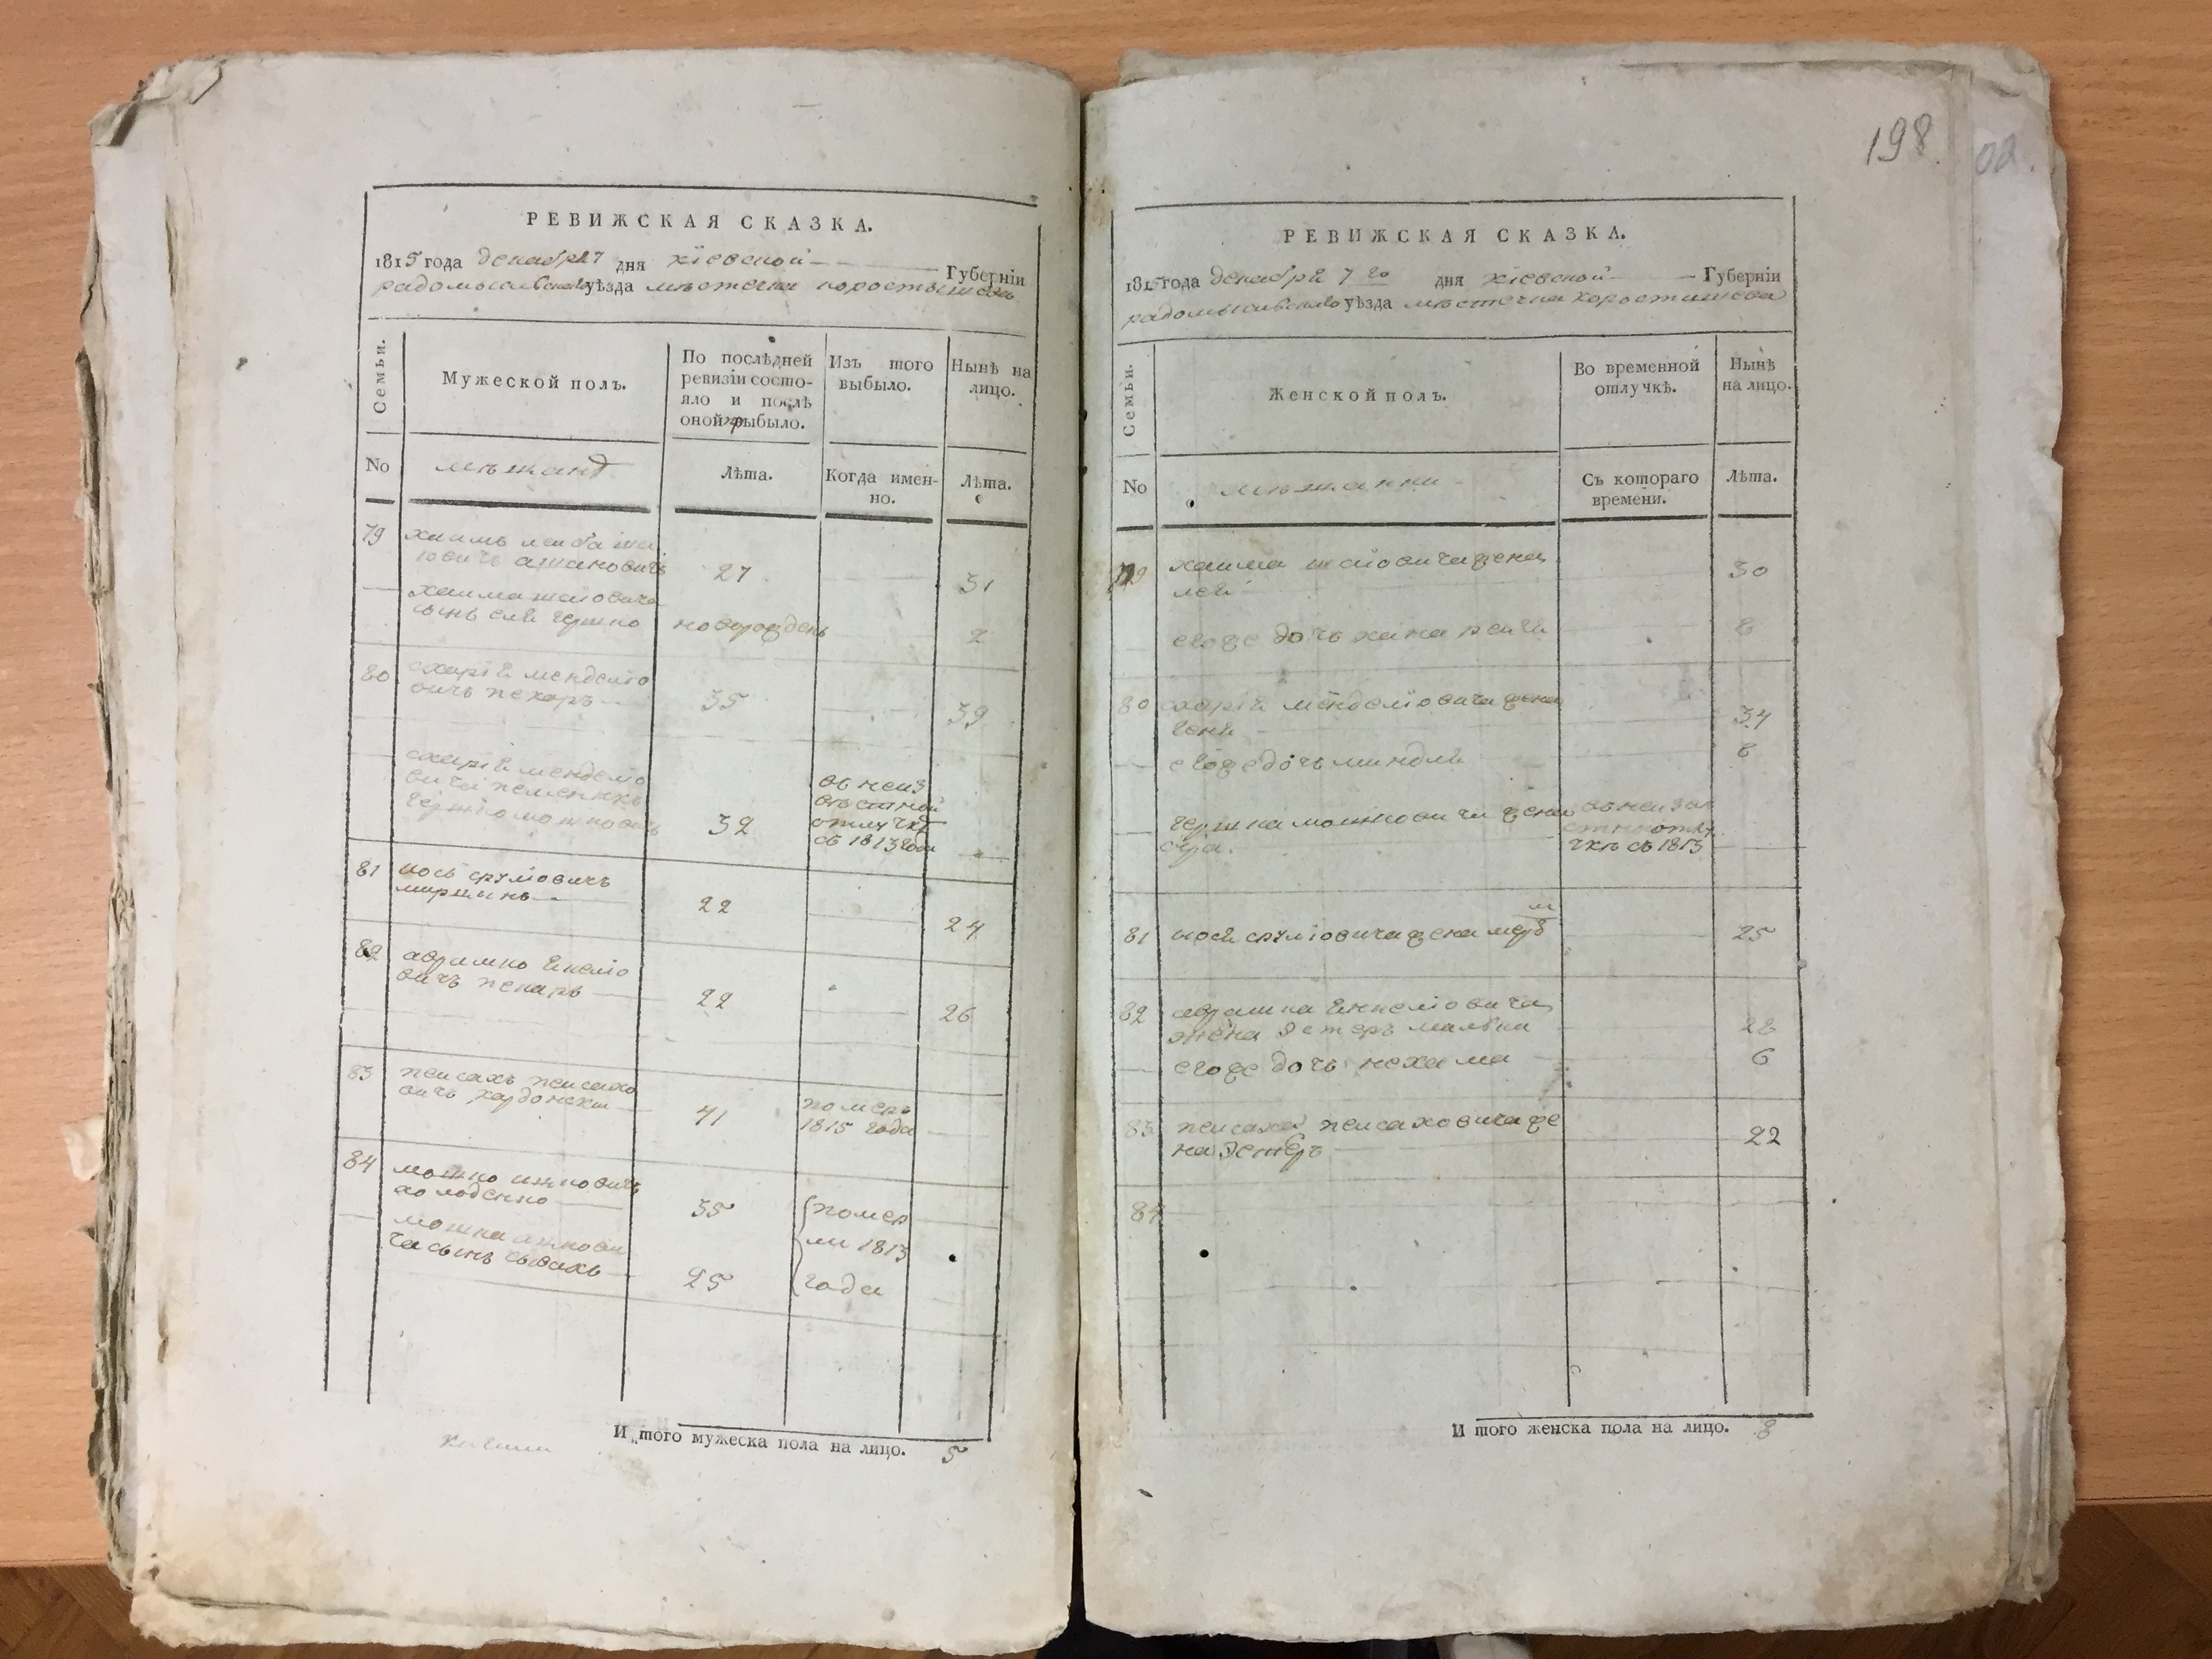 РЕВИЖСКАЯ СКАЗКА.
1815 года декабря 7 дня кіевской Губерніи
радомысльского уѣзда мѣстечка коростышева
Семьи.
Мужеской полъ.
По послѣдней
ревизіи состо-
яло и послѣ
оной прибыло.
Изъ того
выбыло.
Нынѣ на
лицо.
No
мѣщанѣ
Лѣта.
Когда имен-
но.
Лѣта.
79 хаимъ лейба
овичъ 27 31
хаима шаіовича
сынъ елй гершко новорожденъ 2
80 схарій менделіо
вичъ пекаръ 35 39
схарій менделіо
вича племеникъ
гершко мошковичъ 32
въ неиз
вѣстной
отлучкѣ
съ 1813 года
81 йось сруліовичъ
22 24
82 аврамко
вичъ пекаръ 22 26
83 пейсахъ пейсахо
вичъ 41
померъ
1815 года
84 мошко ицковичъ
холоденко 35
мошка ицкови
ча сынъ 25
помер
ли 1813
года
И того мужеска пола на лицо. 5
198.
02.
РЕВИЖСКАЯ СКАЗКА.
1815 года декабря 7 го дня кіевской Губерніи
радомысльского уѣзда мѣстечка коростишева
Семьи.
Женской полъ.
Во временной
отлучкѣ.
Нынѣ
на лицо.
No
мѣщанки
Съ котораго
времени.
Лѣта.
79 хаима шаіовича жена
лея 30
егоже дочь хана рейзя 8
80 схарій менделіовича жена
геня 34
егоже дочь миндля 8
гершка мошковича жена
сура.
въ неизвѣ
стной отлу
чкѣ съ 1813
81 йося сруліовича жена 25
82 аврамка
жена эстеръ малька 28
егоже дочь нехама 6
83 пейсаха пейсаховича же
на эстеръ 22
84
И того женска пола на лицо. 8